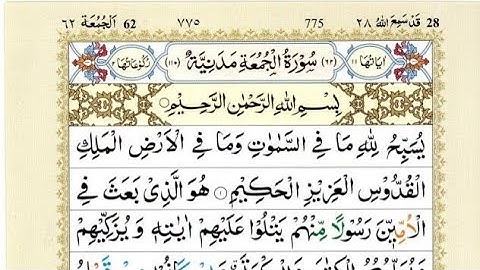 28 قَدْ سَمِعَ اللهُ ٢٨ 775 ٧٧٥ 62 اَلْجُمُعَة ٦٢
اٰيَاتُهَا ١١ (٦٢) سُوْرَةُ الْجُمُعَةِ مَدَنِيَّةٌ (١١٠) رُكُوْعَاتُهَا ٢
بِسْمِ اللهِ الرَّحْمٰنِ الرَّحِيْمِ
يُسَبِّحُ لِلّٰهِ مَا فِي السَّمٰوٰتِ وَمَا فِي الْاَرْضِ الْمَلِكِ
الْقُدُّوْسِ الْعَزِيْزِ الْحَكِيْمِ ۝١ هُوَ الَّذِيْ بَعَثَ فِي
الْاُمِّيّٖنَ رَسُوْلًا مِّنْهُمْ يَتْلُوْا عَلَيْهِمْ اٰيٰتِهٖ وَ يُزَكِّيْهِمْ